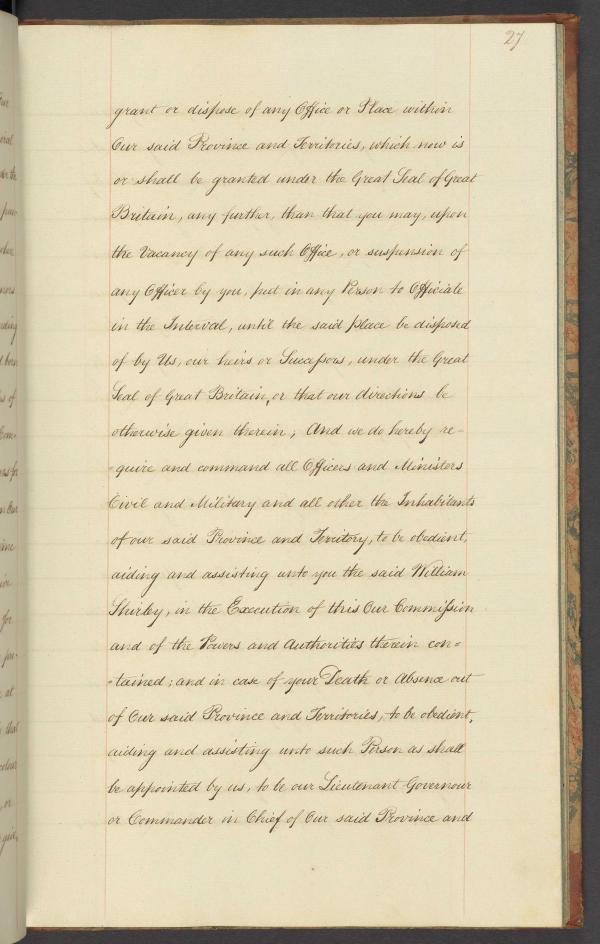 27
grant or dispose of any Office or Place within
Our said Province and Territories, which now is
or shall be granted under the Great Seal of Great
Britain, any further, than that you may, upon
the Vacancy of any such Office, or suspension of
any Officer by you, put in any Person to Officiate
in the Interval, until the said place be disposed
of by Us, our heirs or Succeſsors, under the Great
Seal of Great Britain, or that our directions be
otherwise given therein; And we do hereby re=
=quire and command all Officers and Ministers
Civil and Military and all other the Inhabitants
of our said Province and Territory, to be obedient,
aiding and assisting unto you the said William
Shirley, in the Execution of this Our Commiſsion
and of the Powers and Authorities therein con=
=tained; and in case of your Death or Absence out
of Our said Province and Territories, to be obedient,
aiding and assisting unto such Person as shall
be appointed by us, to be our Lieutenant Governour
or Commander in Chief of Our said Province and